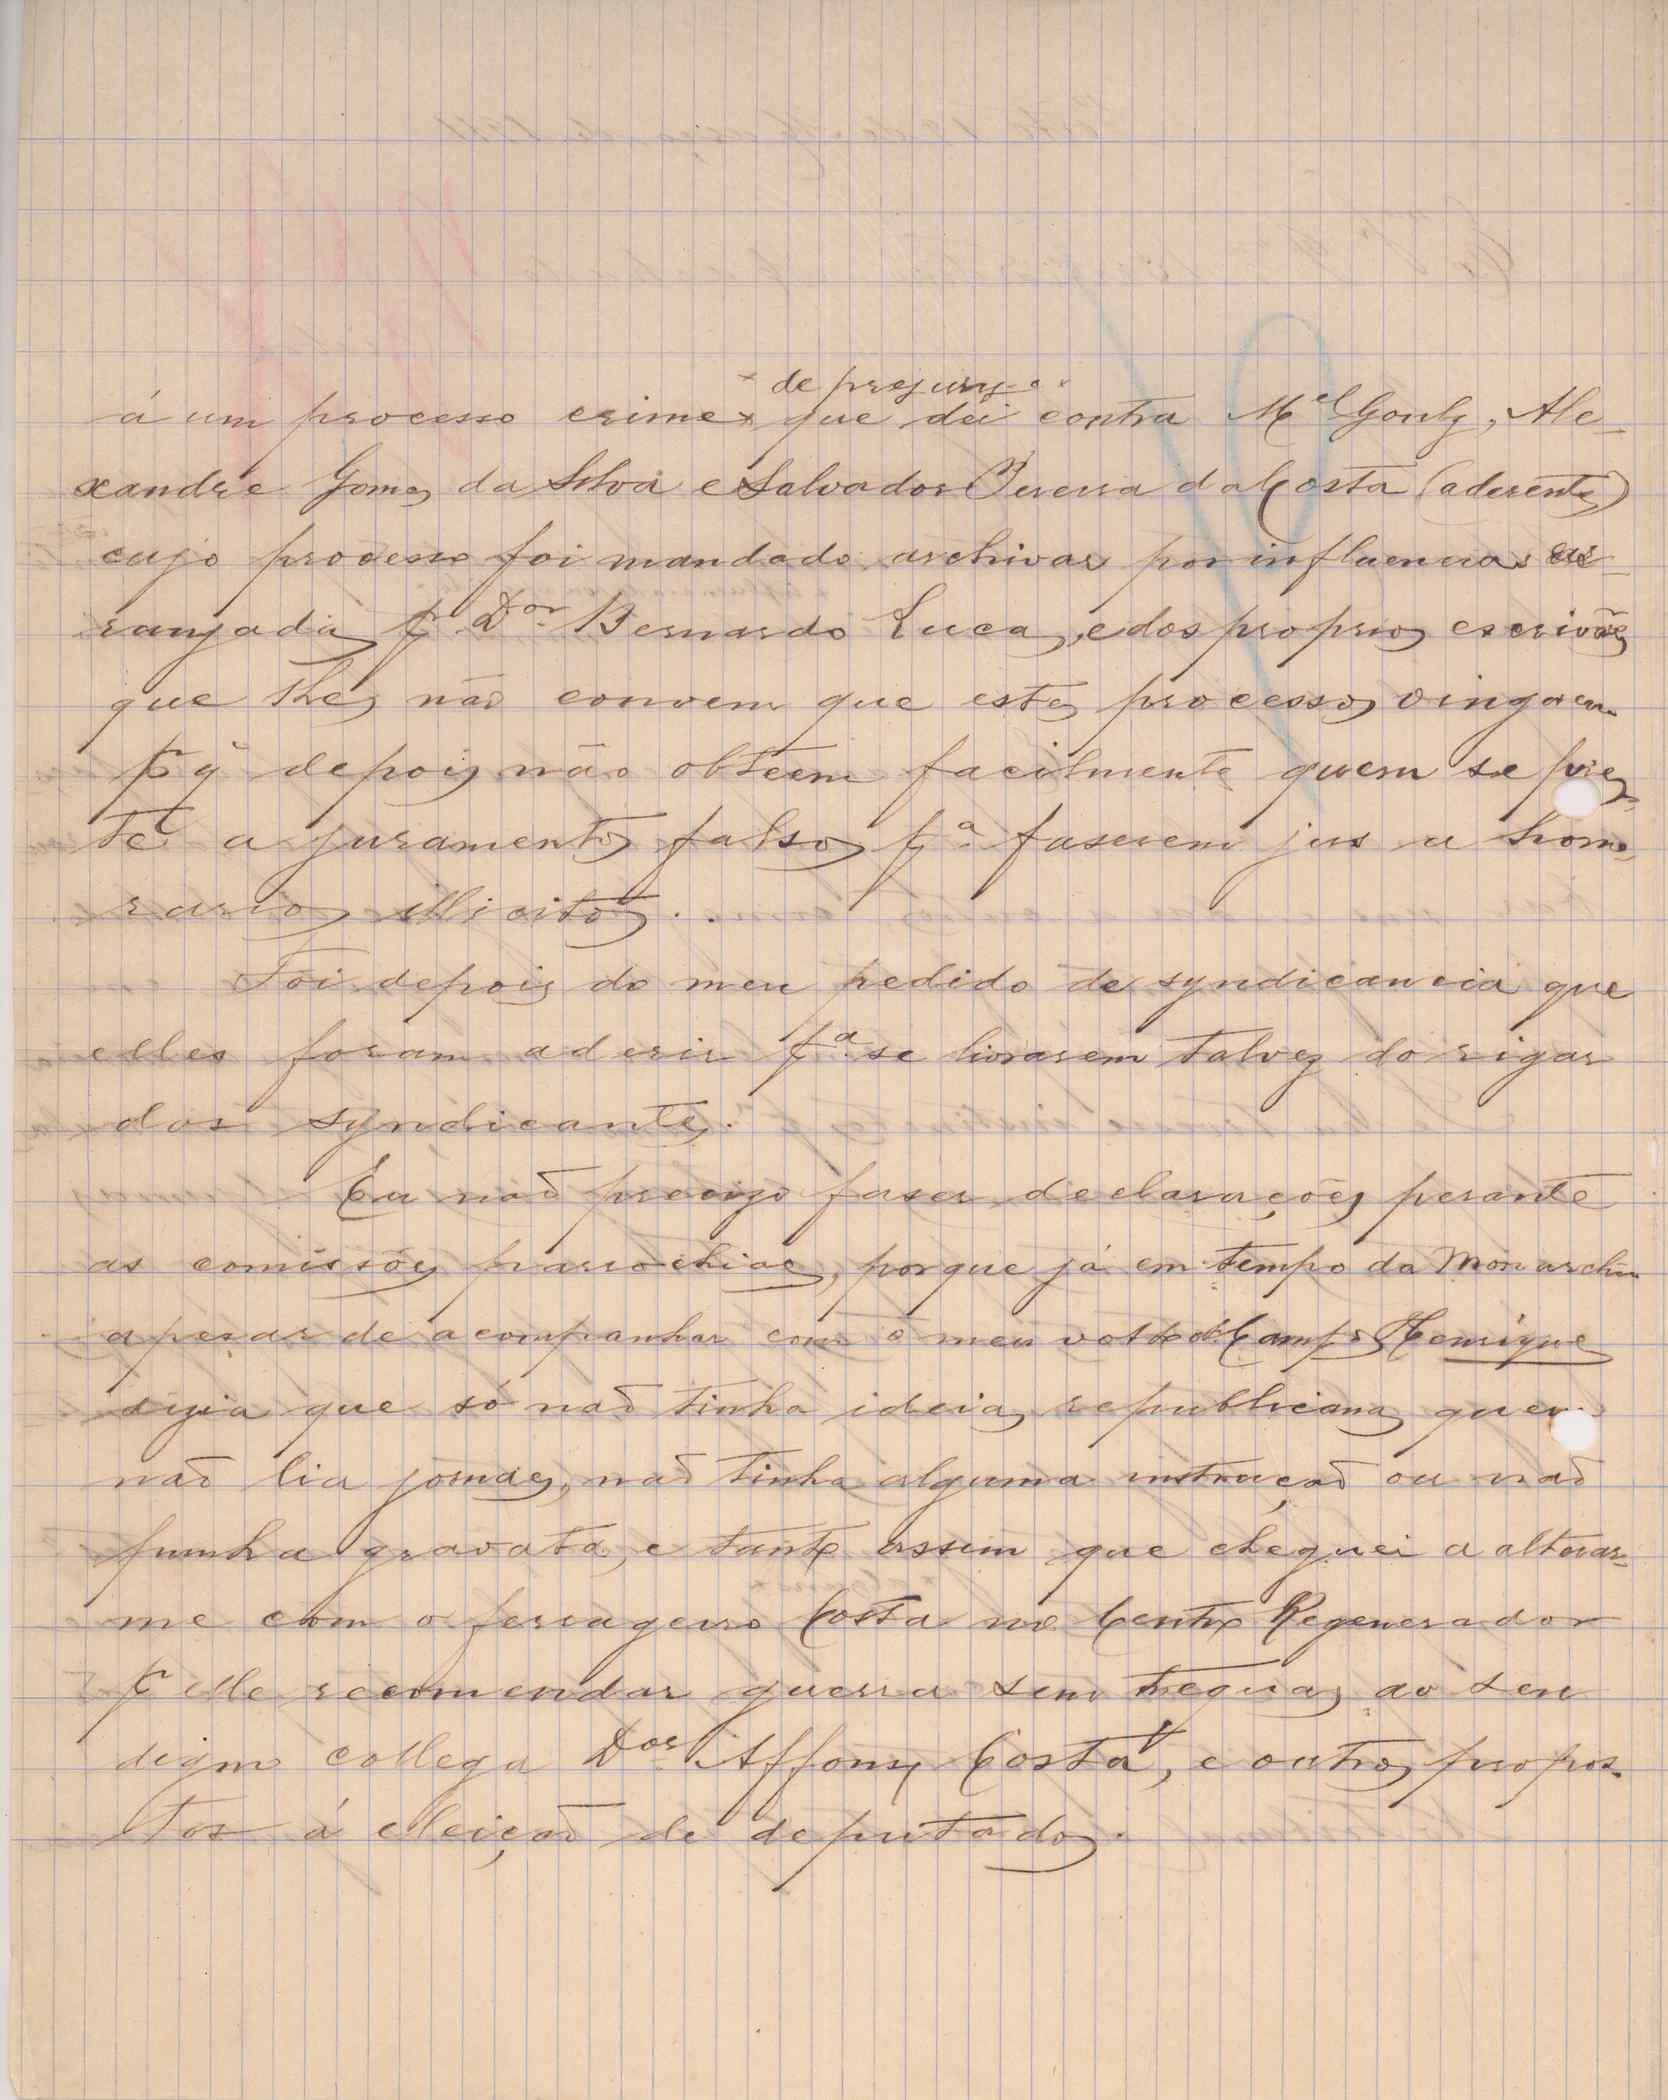 × de prejuryo ×
á um processo crime × que dei contra Mel Gonlz, Ale-
xandre Gomes da Silva e Salvador Pereira da Costa (aderentes)
cujo processo foi mandado archivar por influencias ar-
ranjadas pr Dor Bernardo Lucas, e dos proprios escrivães
que lhes não convem que estes processos vingarem
pr q̃ depois não obteem facilmente quem se pres-
te a juramentos falsos pa faserem jus a hono-
rarios illicitos..
Foi depois do meu pedido de syndicancia que
elles foram aderir pa se livrarem talvez do rigor
dos syndicantes.
Eu não precizo faser declarações perante
as comissões parrochiaes, porque já em tempo da Monarchia
apesar de acompanhar com o meu voto o dr Campos Henriques
dizia que só não tinha ideias republicanas quem
não lia jornaes, não tinha alguma instrucção ou não
punha gravata, e tanto assim que cheguei a alterar-
me com o ferrageiro Costa no Centro Regenerador
pr elle recomendar guerra sem treguas ao seu
digno collega Dor Affonso Costa, e outros propos-
tos á elleição de deputados.